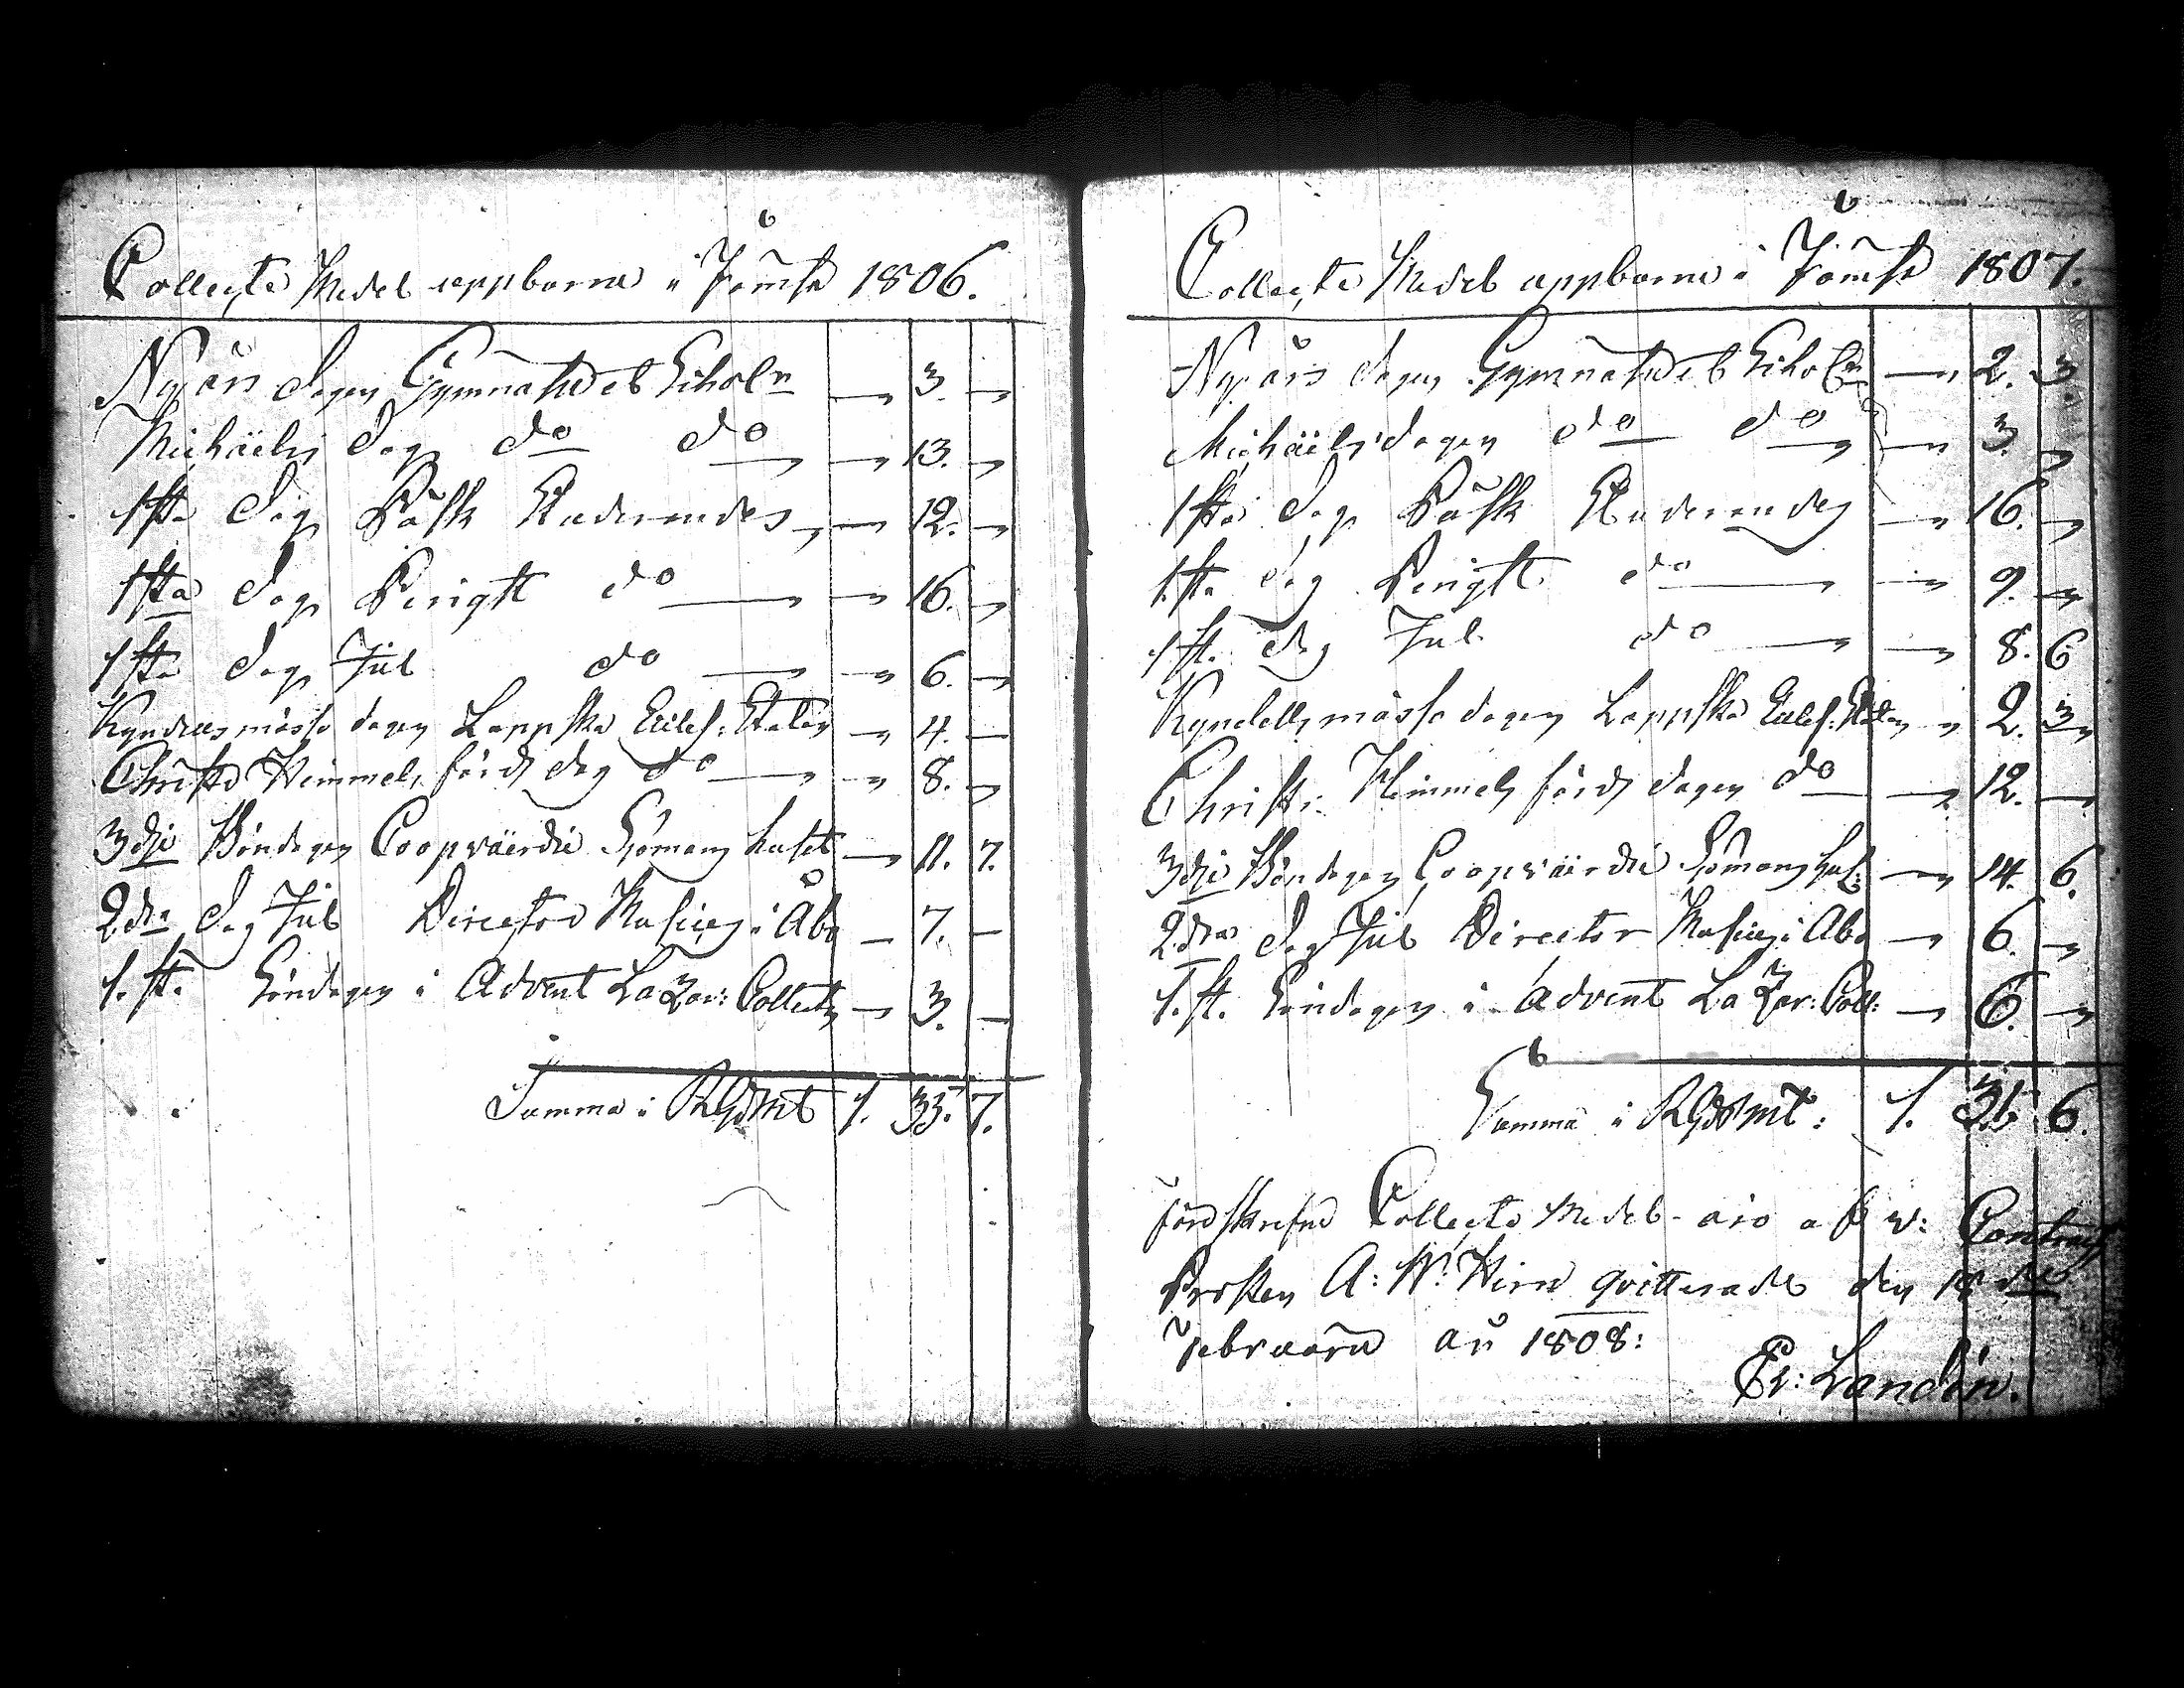 Collecte Medel uppborne i Jämsä 1806.
Nyårs dagen Gymnasii et Schol: — 3. —
Michaëlis dag do do — 13. —
1sta dag Påsk Studerandes — 12. —
1sta dag Pingst do — 16. —
1sta dag Jul do — 6. —
Kyndelsmässo dagen Lappska Eccles: Staten — 4. —
Christi Himmels färds dag do — 8. —
3dje Böndagen Coopvaerdie Sjömans huset — 11. 7.
2dra dag Jul Director Musices i Åbo — 7. —
1.sta Söndagen i Advent Lazar: Collecten — 3. —
Summa i RGdsmt 1. 35. 7.
Collecte Medel uppborne i Jämsä 1807.
Nyårs dagen Gymnasii et Schol: — 2. 3
Michaëlis dagen do do — 3. —
1sta dag Påsk Studerandes — 16. —
1.sta dag Pingst do — 9. —
1st. dag Jul do — 8. 6
Kyndellsmässo dagen Lappska Eccles: Staten — 2. 3
Christi Himmels färds dagen do — 12. —
3dje Böndagen Coopvaerdie Sjömans Hus: — 14. 6.
2dra dag Jul Director Musices i Åbo — 6. —
1.st. Söndagen i Advent Lazar: Coll: — 6. —
Summa i RGdsmt: 1. 31. 6.
Föreskrefne Collecte Medel äro af v: Contracts
Prosten A: W: Hirn qvitterade den 18de
Februarii år 1808:
Er: Landén.